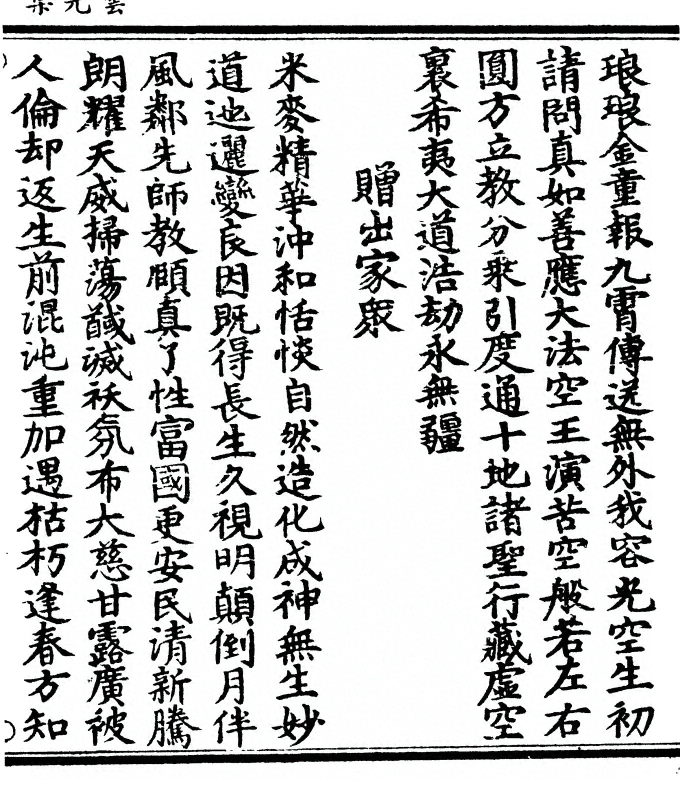 琅琅金童報九霄傳送無外我容光空生初
請問真如善應大法空王演苦空般若左右
圓方立教分乘引度通十地諸聖行藏虛空
裏希夷大道浩劫永無疆
贈出家眾
米麥精華沖和恬惔自然造化成神無生妙
道迆邐變良因既得長生久視明顛倒月伴
風鄰先師教頤真了性富國更安民清新騰
朗耀天威掃蕩馘滅祅氛布大慈甘露廣被
人倫却返生前混沌重加遇枯朽逢春方知